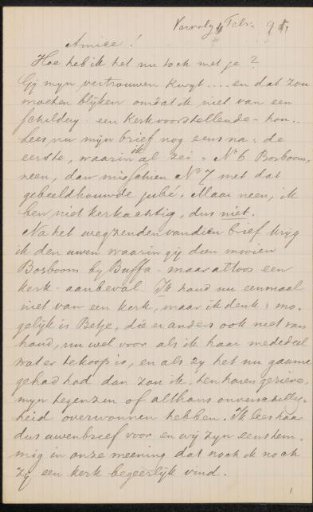 Amice!
Hoe heb ik het nu toch met je?
Gij mijn vertrouwen kwijt .... en dat zou
moeten blijken omdat ik niet van een
schilderij - een kerk voorstellende - hou.
Lees nu mijn brief nog eens na: de
eerste, waarin ik al zei: No 6 Bosboom,
neen, dan misschien No 7 met dat
gebeeldhouwde jubé. Maar neen, ik
ben niet kerkachtig, dus niet.
Na het wegzenden van dien brief krijg
ik den uwen waarin gij dien mooien
Bosboom bij Buffa - maar altoos een
kerk - aanbeval. Ik houd nu eenmaal
niet van een kerk, maar ik denk: mo-
gelijk is Betje, die er anders ook niet van
houd, nu wel voor als ik haar mededeel
wat er te koop is, en als zij het nu gaarne
gehad had dan zou ik henharen
mijn tegenzin of althans onverschillig-
heid overwonnen hebben. Ik lees haar
dus uwen brief voor en wij zijn eenstem-
mig in onze meening dat noch ik noch
zij een kerk begeerlijk vind.